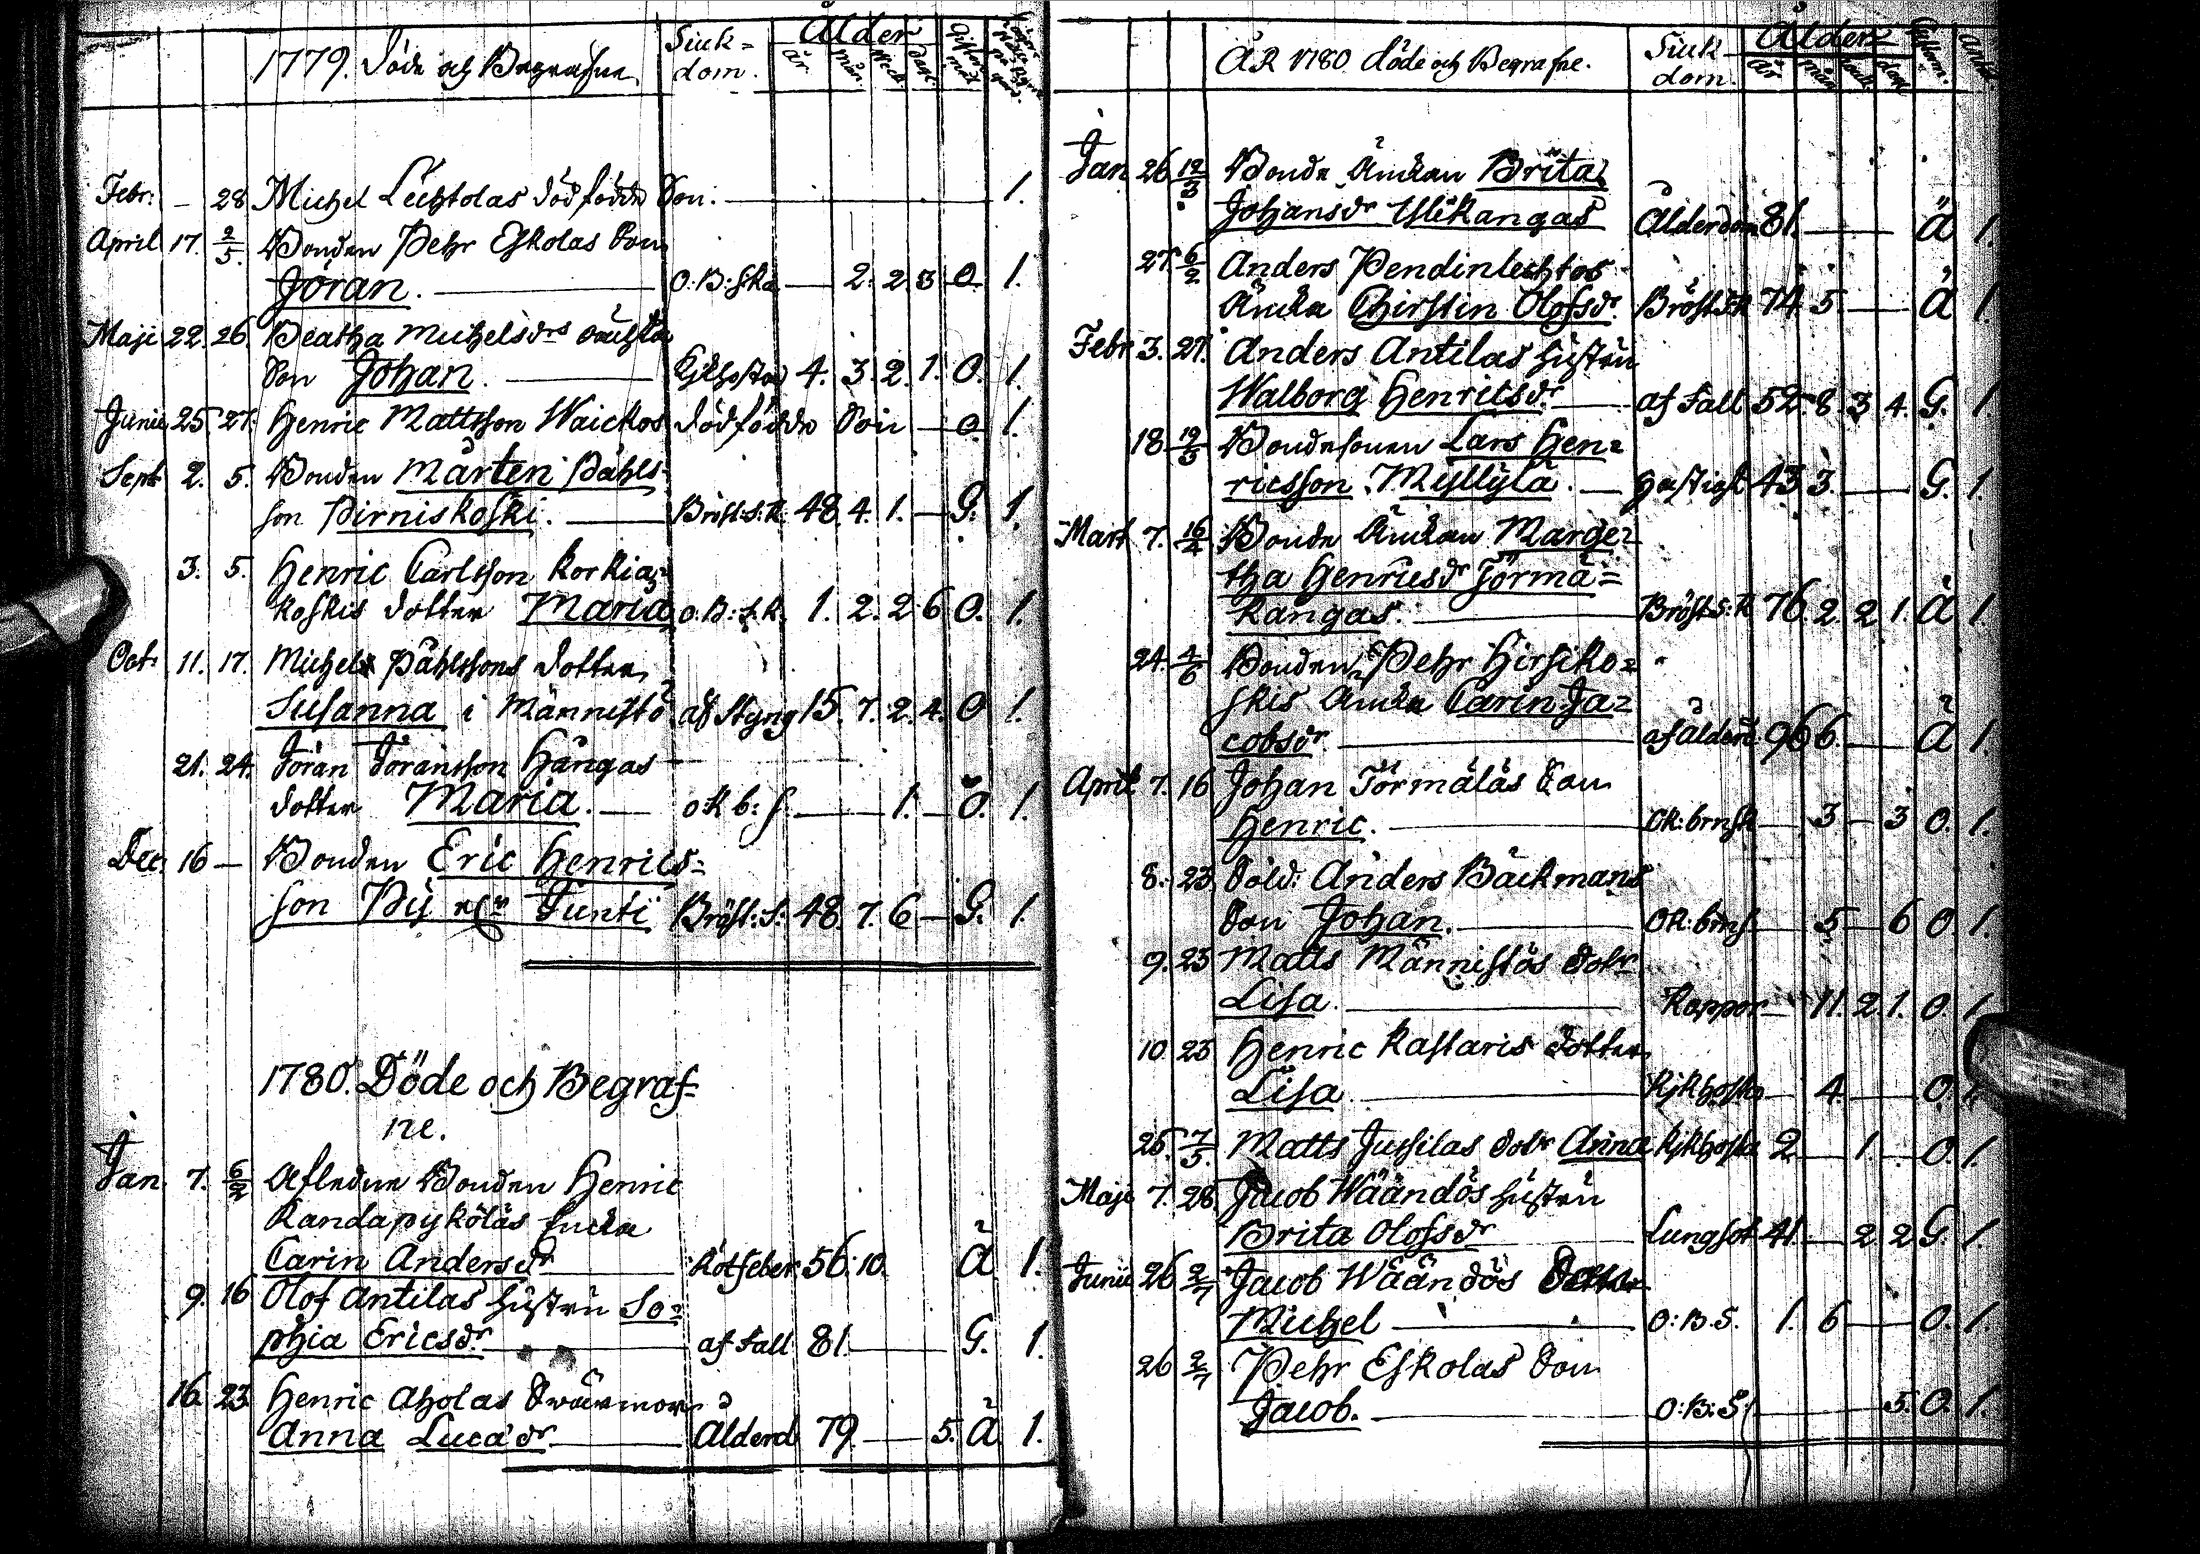 1779. Döde och Begrafne.
Siuk=
dom.
Ålder
År
Mån.
Weck.
Dag.
Febr: — 28 Michel Lechtolas dödfödde Son. — 1.
April 17. 2/5. Bonden Pehr Eskolas Son
Jöran. — O:B:ska — 2. 2 3 O. 1.
Maji 22. 26. Beatha Michelsdrs oächta
Son Johan. — Kjkhosta 4. 3. 2. 1. O. 1.
Junii 25 27. Henric Mattsson Waickos dödfödde Son — O. 1.
Sept 2. 5. Bonden Mårten Påhls-
son Pirniskoski. — Bröst:s:k. 48. 4. 1. — G. 1.
3. 5. Henric Carlsson Korkia-
koskis dotter Maria O:B:s.k. 1. 2. 2 6 O. 1.
Oct: 11. 17. Michel Påhlssons dotter
Susanna i Männistö af Styng 15. 7. 2. 4. O 1.
21. 24. Jöran Jöransson Hångas
dotter Maria. — ok b: s. — 1. — O. 1.
Dec. 16 — Bonden Eric Henrics=
son Py Junti Bröst:S: 48. 7. 6 — G. 1.
1780. Döde och Begraf=
ne.
Jan 7. 6/2 Afledne Bonden Henric
Randapyköläs Encka
Carin Andersdr Rötfeber 56. 10. Ä 1.
9. 16 Olof Antilas hustru So=
phia Ericsdr. — af Fall 81. — G. 1.
16. 23 Henric Aholas Swärmor
Anna Lucædr — Ålderd 79 — 5. Ä. 1.
ÅR 1780. döde och Begrafne.
Siuk
dom.
Ålder
År
Jan 26 12/3 Bonde Änckan Brita
Johansdr Ylikangas Ålderdom 81. — Ä 1.
27. 6/2 Anders Pendinlechtos
Äncka Chirstin Olofsdr. Bröstsk 74. 5. — Ä 1.
Febr 3. 27. Anders Antilas hustru
Walborg Henricsdr — af Fall 52. 8. 3 4. G. 1.
18. 12/3 Bondesonen Lars Hen=
ricsson Myllylä. — hastigt 43 3. — G. 1.
Mart 7. 16/4 Bonde Änckan Marge=
tha Henricsdr Törmä=
kangas. — Bröst:s:k 76. 2. 2 1. Ä 1.
24. 4/6 Bonden Pehr Hirsiko=
skis Äncka Carin Ja=
cobsdr — af ålderd. 96 6. — Ä 1.
April 7. 16 Johan Törmäläs Son
Henric. — Ok:brnsk — 3 — 3 O. 1.
8. 23 Sold: Anders Bäckmans
Son Johan. — OK:brns. — 5 — 6 O 1.
9. 23 Matts Männistös dotr
Lisa. — Koppor — 11. 2. 1. O 1.
10 23 Henric Kastaris dotter
Lisa. — Kjkhosta — 4. — O. 1.
25. 7/5. Matts Jussilas dotr Anna Kjkhosta 2. — 1. O. 1.
Maji 7. 28 Jacob Wäändös hustru
Brita Olofsdr Lungsot 41. — 2 2 G. 1.
Junii 26 2/7 Jacob Wäändös
Michel — O:B.S. 1. 6 — O. 1.
26 2/7 Pehr Eskolas Son
Jacob. — O:B:S: — 5. O. 1.